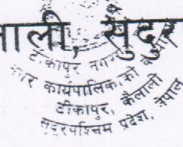 ाली, सुदुर
टीकापुर नगर
कार्यपालिका को
टीकापुर, कैलाली
सुदूरपश्चिम प्रदेश, नेपाल